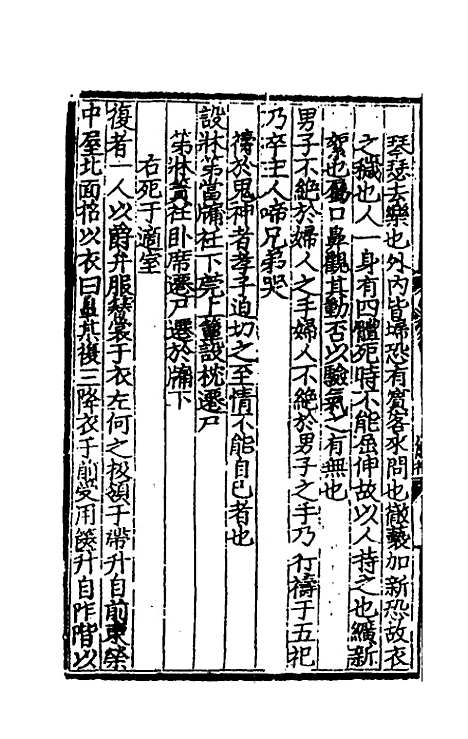 琴瑟去樂也外內皆埽恐有賓客來問也徹褻加新恐故衣
之穢也人一身有四體死時不能屈伸故以人持之也纊新
絮也屬口鼻觀其動否以驗氣之有無也
男子不絕於婦人之手婦人不絕於男子之手乃行禱于五祀
乃卒主人啼兄弟哭
禱於鬼神者孝子迫切之至情不能自已者也
設牀第當牖衽下莞上簟設枕遷尸
第牀簀衽卧席遷尸遷於牖下
右死于適室
復者一人以爵弁服簪裳于衣左何之扱領于帶升自前東榮
中屋北面招以衣曰臯某復三降衣于前受用篋升自阼階以